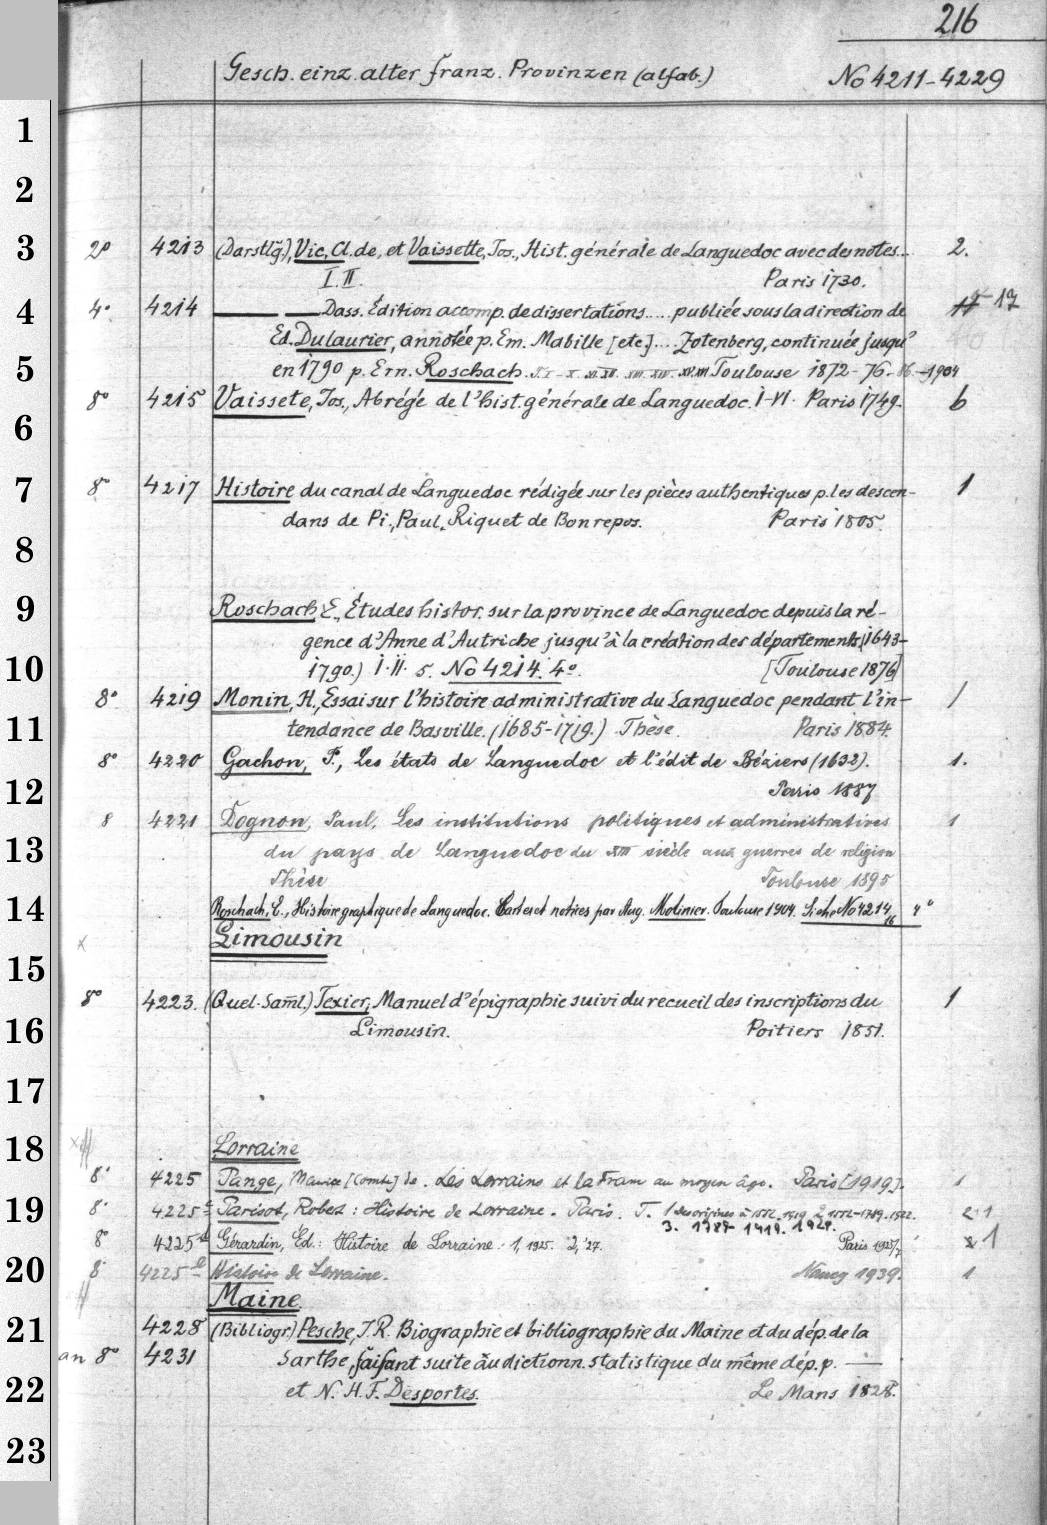 216
Gesch. einz. alter franz. Provinzen (alfab.) No 4211-4229
1
2
3 2° 4213 (Darstllg.), Vic, Cl. de, et Vaissette, Jos., Hist. générale de Languedoc avec des notes... 2.
I. II. Paris 1730.
4 4° 4214 —— — Dass. Édition accomp. de dissertations.... publiée sous la direction de 17
Ed. Dulaurier, annotée p. Em. Mabille [etc.].... Zotenberg, continuée jusqu'
5 en 1790 p. Ern. Roschach. Toulouse 1872-76- -1904
8° 4215 Vaissete, Jos., Abrégé de l'hist. générale de Languedoc. I-VI. Paris 1749. 6
6
7 8° 4217 Histoire du canal de Languedoc rédigée sur les pièces authentiques p. les descen- 1
dans de Pi., Paul, Riquet de Bonrepos. Paris 1805.
8
9 Roschach E., Études histor. sur la province de Languedoc depuis la ré-
gence d'Anne d'Autriche jusqu'à la création des départements. (1643-
10 1790.) I. II. s. No 4214. 4°. [Toulouse 1876]
8° 4219 Monin, H., Essai sur l'histoire administrative du Languedoc pendant l'in- 1
11 tendance de Basville. (1685-1719.) Thèse. Paris 1884.
8° 4220 Gachon, P., Les états de Languedoc et l'édit de Béziers (1632). 1.
12 Paris 1887
8 4221 Dognon, Paul, Les institutions politiques et administratives 1
13 du pays de Languedoc du XIII siècle aux guerres de religion
Thèse Toulouse 1895
14 Roschach, E., Histoire graphique de Languedoc. Cartes et notices par Aug. Molinier. Toulouse 1904. Siehe No 4214, 16 4°
x Limousin
15
8° 4223. (Quel. Saml.) Texier, Manuel d'épigraphie suivi du recueil des inscriptions du 1
16 Limousin. Poitiers 1851.
17
18 Lorraine
8° 4225 Pange, Maurice [Comte] de. Les Lorrains et la France au moyen âge. Paris [1919]. 1
19 8° 4225 c Parisot, Robert: Histoire de Lorraine. Paris. T. 1 des origines à 1552. 1919 2 1552-1789. 1922. 1
3. 1789- 1919. 1924.
8° 4225 d Gérardin, Ed.: Histoire de Lorraine. 1, 1925. 2, '27. Paris 1925/7 1
20 8° 4225 e Histoire de Lorraine. Nancy 1939. 1
Maine.
21 4228 (Bibliogr.) Pesche, J. R. Biographie et bibliographie du Maine et du dép. de la
an 8° 4231 Sarthe, faisant suite au dictionn. statistique du même dép. p. ——
22 et N. H. F. Desportes. Le Mans 1828.
23